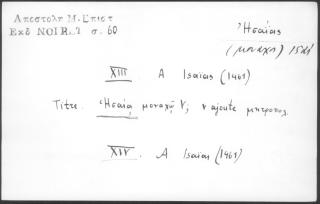 Αποστολη Μ. Επιστ
Εκδ NOIRET σ. 60
Ἡσαίας
(μοναχὸς)
XIII A Isaïas (1461)
Titre. Ἡσαίᾳ μοναχῷ V, ajoute μητροπολ.
XIV. A Isaïas (1461)